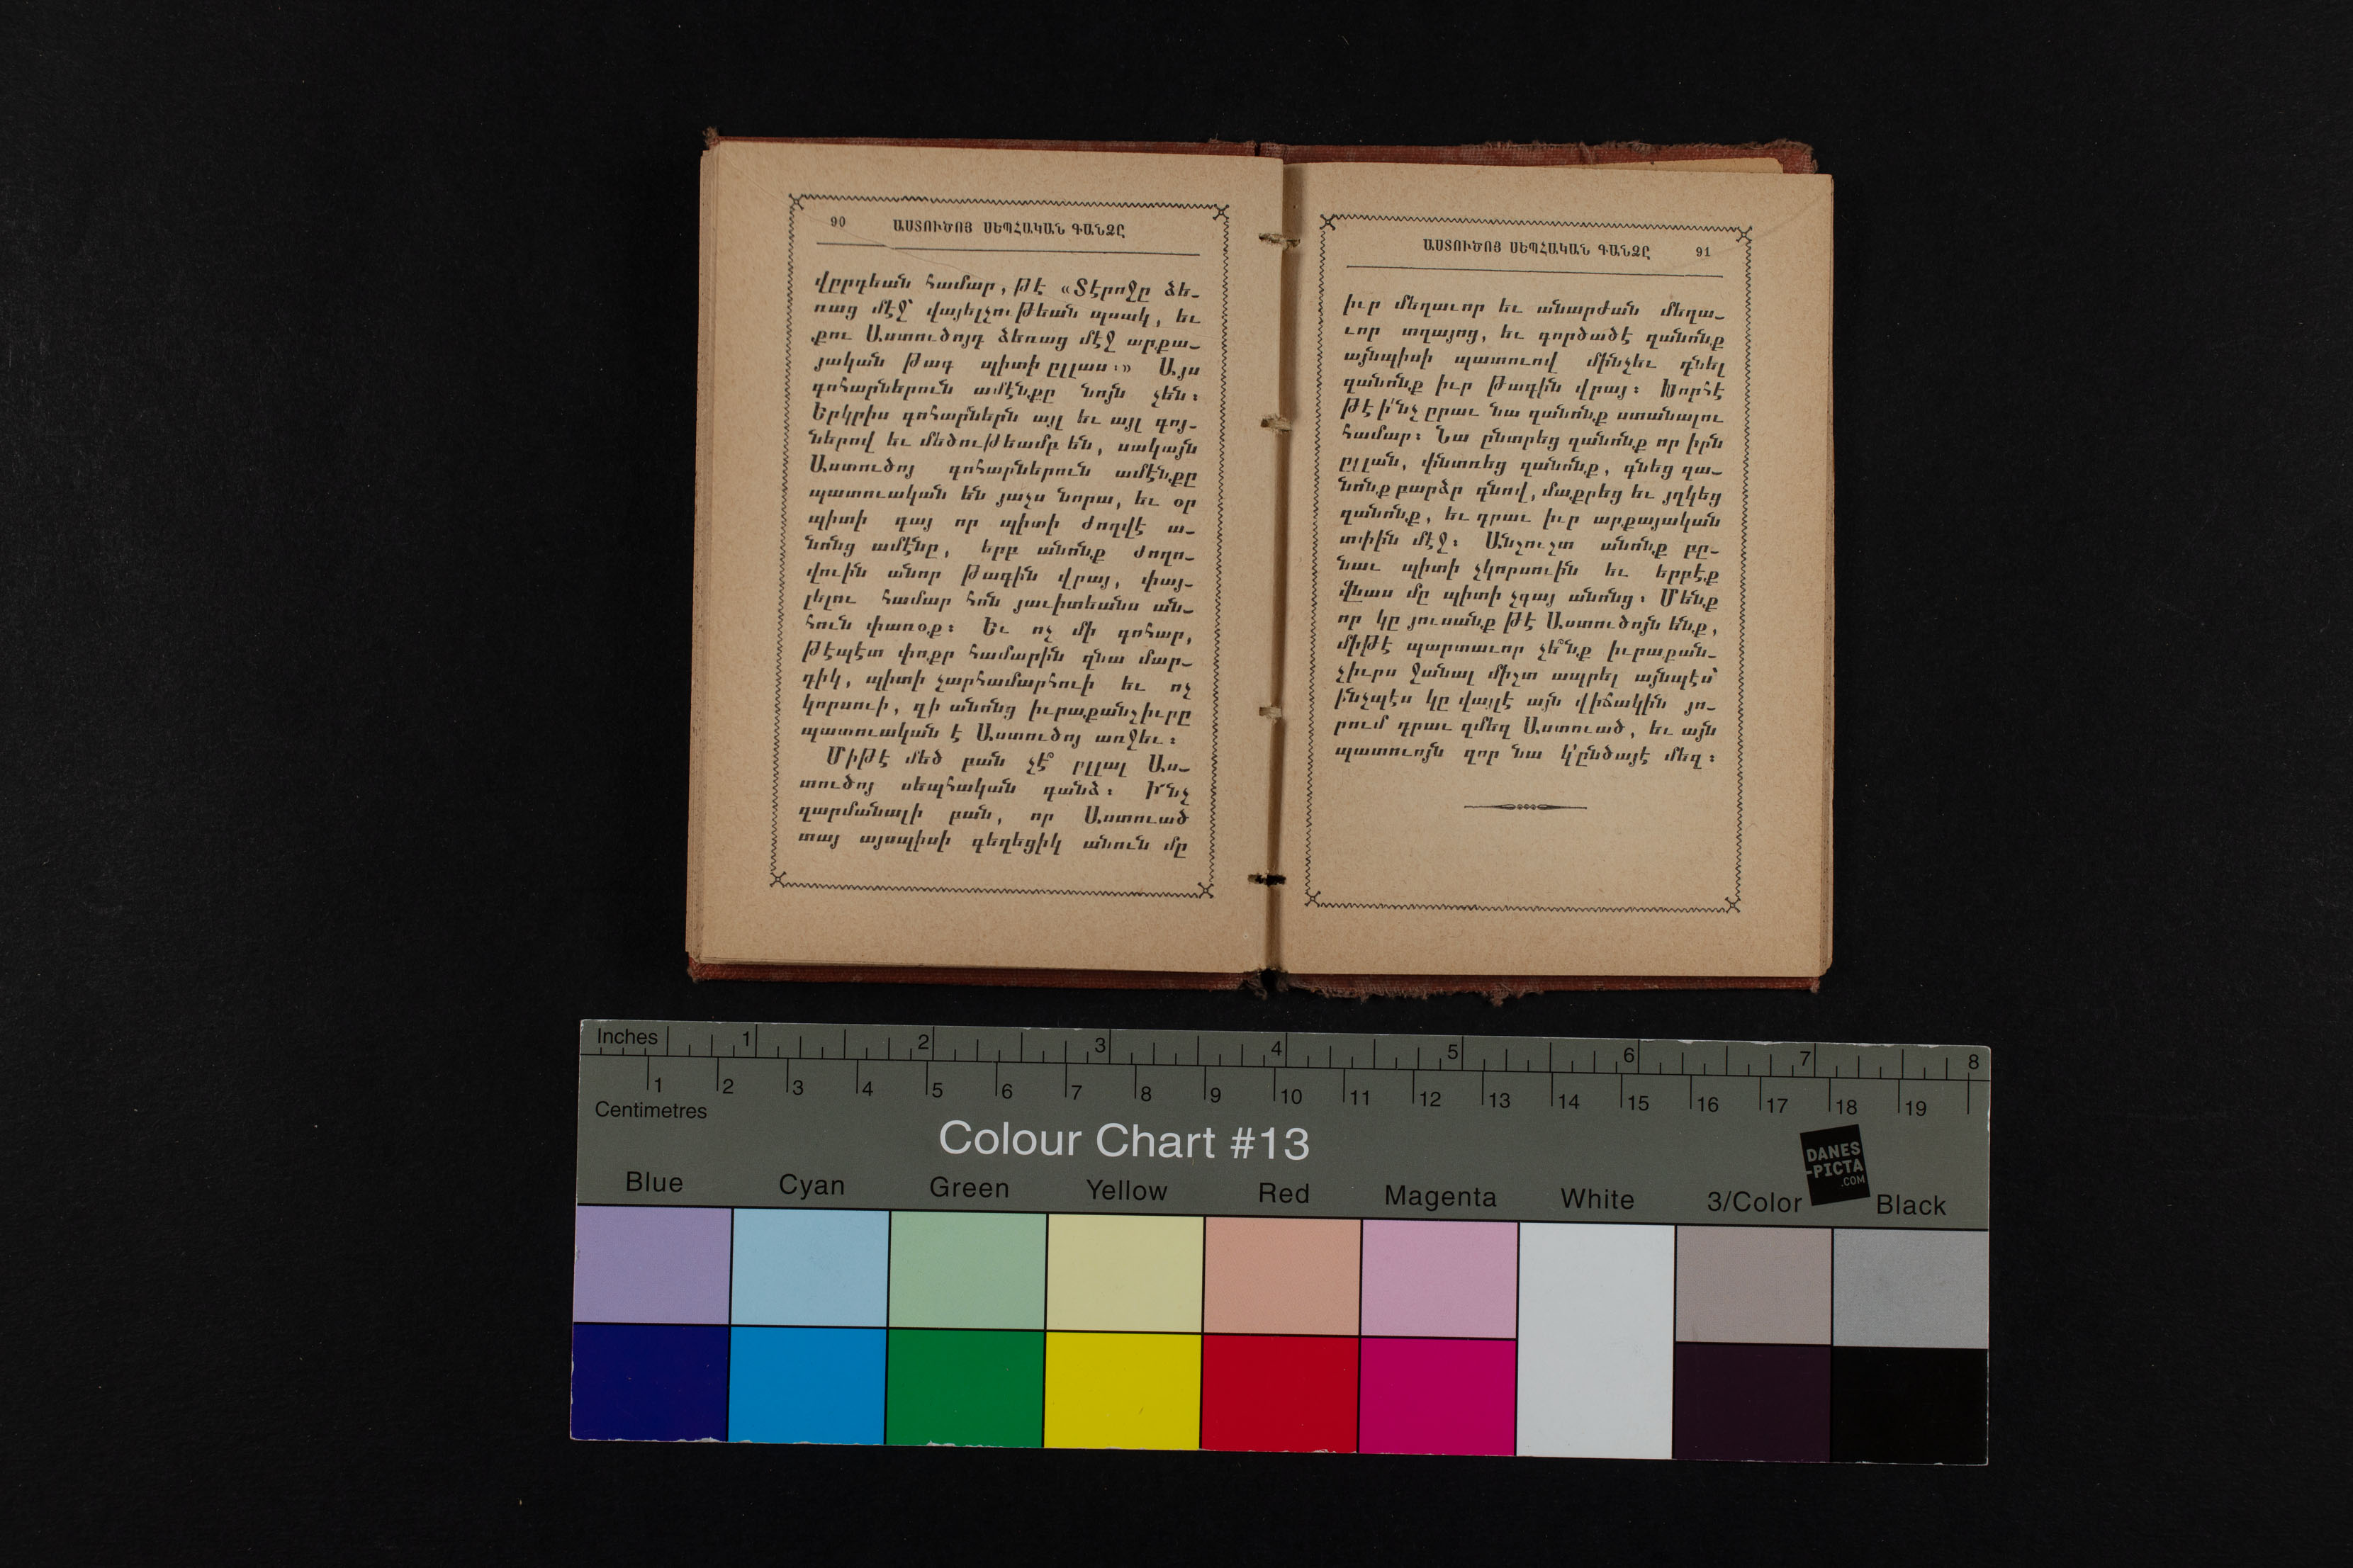 90 ԱՍՏՈՒԾՈՅ ՍԵՊՀԱԿԱՆ ԳԱՆՁԸ
վըրդեան համար, թէ «Տէրոջը ձե-
ռաց մէջ՝ վայելչութեան պսակ, եւ
քու Աստուծոյդ ձեռաց մէջ արքա-
յական թագ պիտի ըլլաս։» Այս
գոհարներուն ամէնքը նոյն չեն։
Երկրիս գոհարներն այլ եւ այլ գոյ-
ներով եւ մեծութեամբ են, սակայն
Աստուծոյ գոհարներուն ամէնքը
պատուական են յաչս նորա, եւ օր
պիտի գայ որ պիտի ժողվէ ա-
նոնց ամէնը, երբ անոնք ժողո-
վուին անոր թագին վրայ, փայ-
լելու համար հոն յաւիտեանս ան-
հուն փառօք։ Եւ ոչ մի գոհար,
թէպէտ փոքր համարին զնա մար-
դիկ, պիտի չարհամարհուի եւ ոչ
կորսուի, զի անոնց իւրաքանչիւրը
պատուական է Աստուծոյ առջեւ։
Միթէ մեծ բան չէ՞ ըլլալ Աս-
տուծոյ սեպհական գանձ։ Ի՜նչ
զարմանալի բան, որ Աստուած
տայ այսպիսի գեղեցիկ անուն մը
ԱՍՏՈՒԾՈՅ ՍԵՊՀԱԿԱՆ ԳԱՆՁԸ 91
իւր մեղաւոր եւ անարժան մեղա-
ւոր տղայոց, եւ գործածէ զանոնք
այնպիսի պատուով մինչեւ դնել
զանոնք իւր թագին վրայ։ Խորհէ
թէ ի՛նչ ըրաւ նա զանոնք ստանալու
համար։ Նա ընտրեց զանոնք որ իրն
ըլլան, փնտռեց զանոնք, գնեց զա-
նոնք բարձր գնով, մաքրեց եւ յղկեց
զանոնք, եւ դրաւ իւր արքայական
տփին մէջ։ Անշուշտ անոնք բը-
նաւ պիտի չկորսուին եւ երբէք
վնաս մը պիտի չգայ անոնց։ Մենք
որ կը յուսանք թէ Աստուծոյն ենք,
միթէ պարտաւոր չե՞նք իւրաքան-
չիւրս ջանալ միշտ ապրել այնպէս՝
ինչպէս կը վայլէ այն վիճակին յո-
րում դրաւ զմեզ Աստուած, եւ այն
պատուոյն զոր նա կ՚ընծայէ մեզ։
Inches 1 2 3 4 5 6 7 8
1 2 3 4 5 6 7 8 9 10 11 12 13 14 15 16 17 18 19
Centimetres
Colour Chart #13
DANES
-PICTA
.COM
Blue Cyan Green Yellow Red Magenta White 3/Color Black